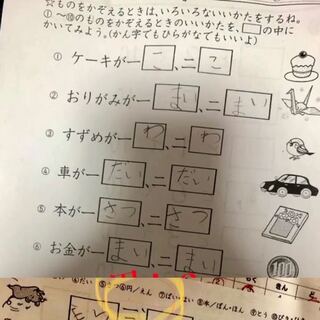 ☆ものをかぞえるときは、いろいろないいかたをするね。
①〜⑩のものをかぞえるときのいいかたを、□の中に
かいてみよう。(かん字でもひらがなでもいいよ)
① ケーキが一こ、二こ
② おりがみが一まい、二まい
③ すずめが一わ、二わ
④ 車が一だい、二だい
⑤ 本が一さつ、二さつ
⑥ お金が一まい、二まい
100
④だい ⑤さつ ⑥円/えん ⑦はい